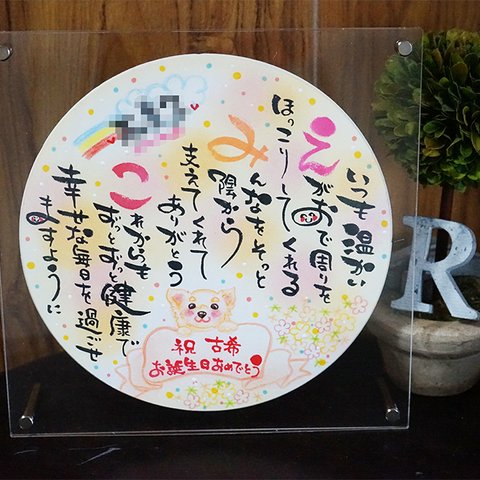 いつも温かい
えがおで周りを
ほっこりしてくれる
みんなをそっと
陰から
支えてくれて
ありがとう
これからも
ずっとずっと健康で
幸せな毎日を過ごせ
ますように
祝 古希
お誕生日おめでとう
R